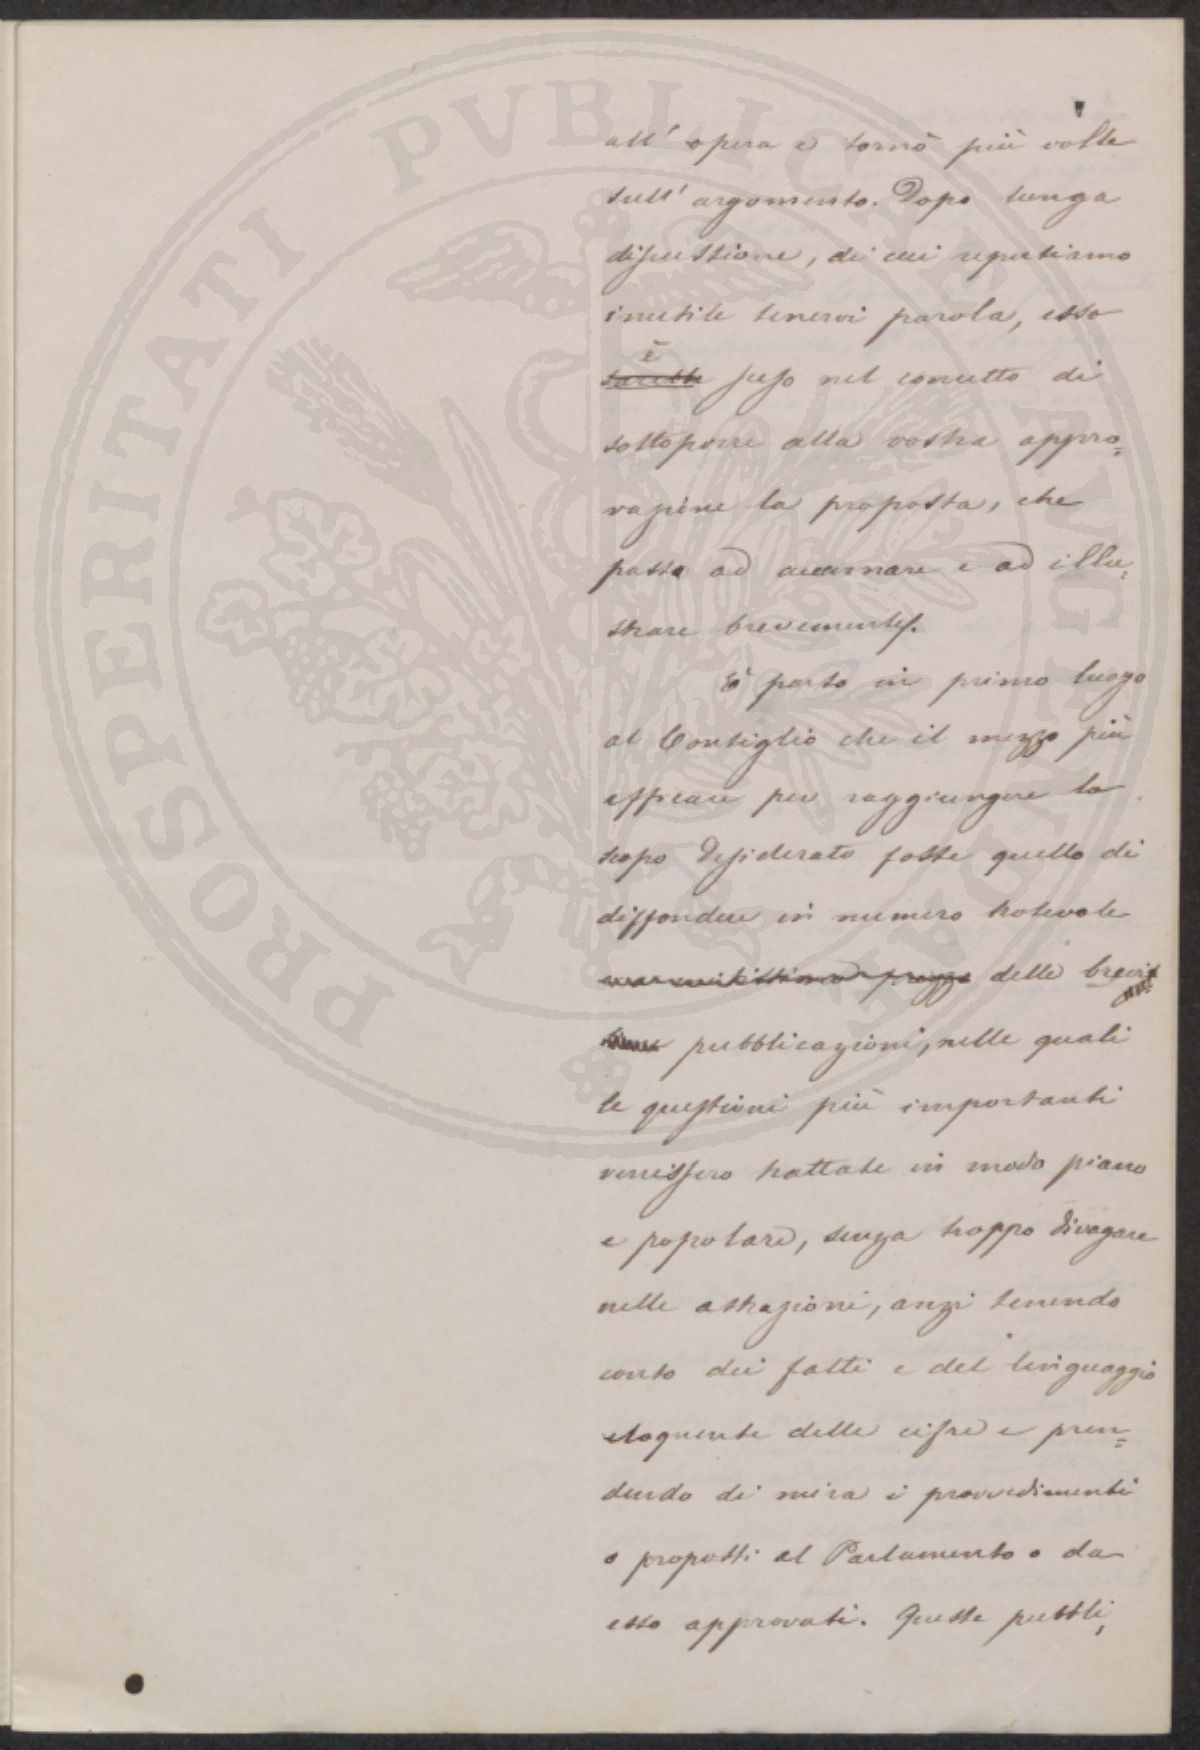 all' opera e tornò più volte
sull' argomento. Dopo lunga
discussione, di cui reputiamo
inutile tenervi parola, esso
è
sarebbe sceso nel concetto di
sottoporre alla vostra appro=
vazione la proposta, che
passo ad accennare e ad illu=
strare brevemente.
È parso in primo luogo
al Consiglio che il mezzo più
efficace per raggiungere lo
scopo desiderato fosse quello di
diffondere in numero notevole
prezzo delle brevi
pubblicazioni, nelle quali
le questioni più importanti
venissero trattate in modo piano
e popolare, senza troppo divagare
nelle astrazioni, anzi tenendo
conto dei fatti e del linguaggio
eloquente delle cifre e pren=
dendo di mira i provvedimenti
o proposti al Parlamento o da
esso approvati. Queste pubbli,
PROSPERITATI PVBLICAE AVGENDAE